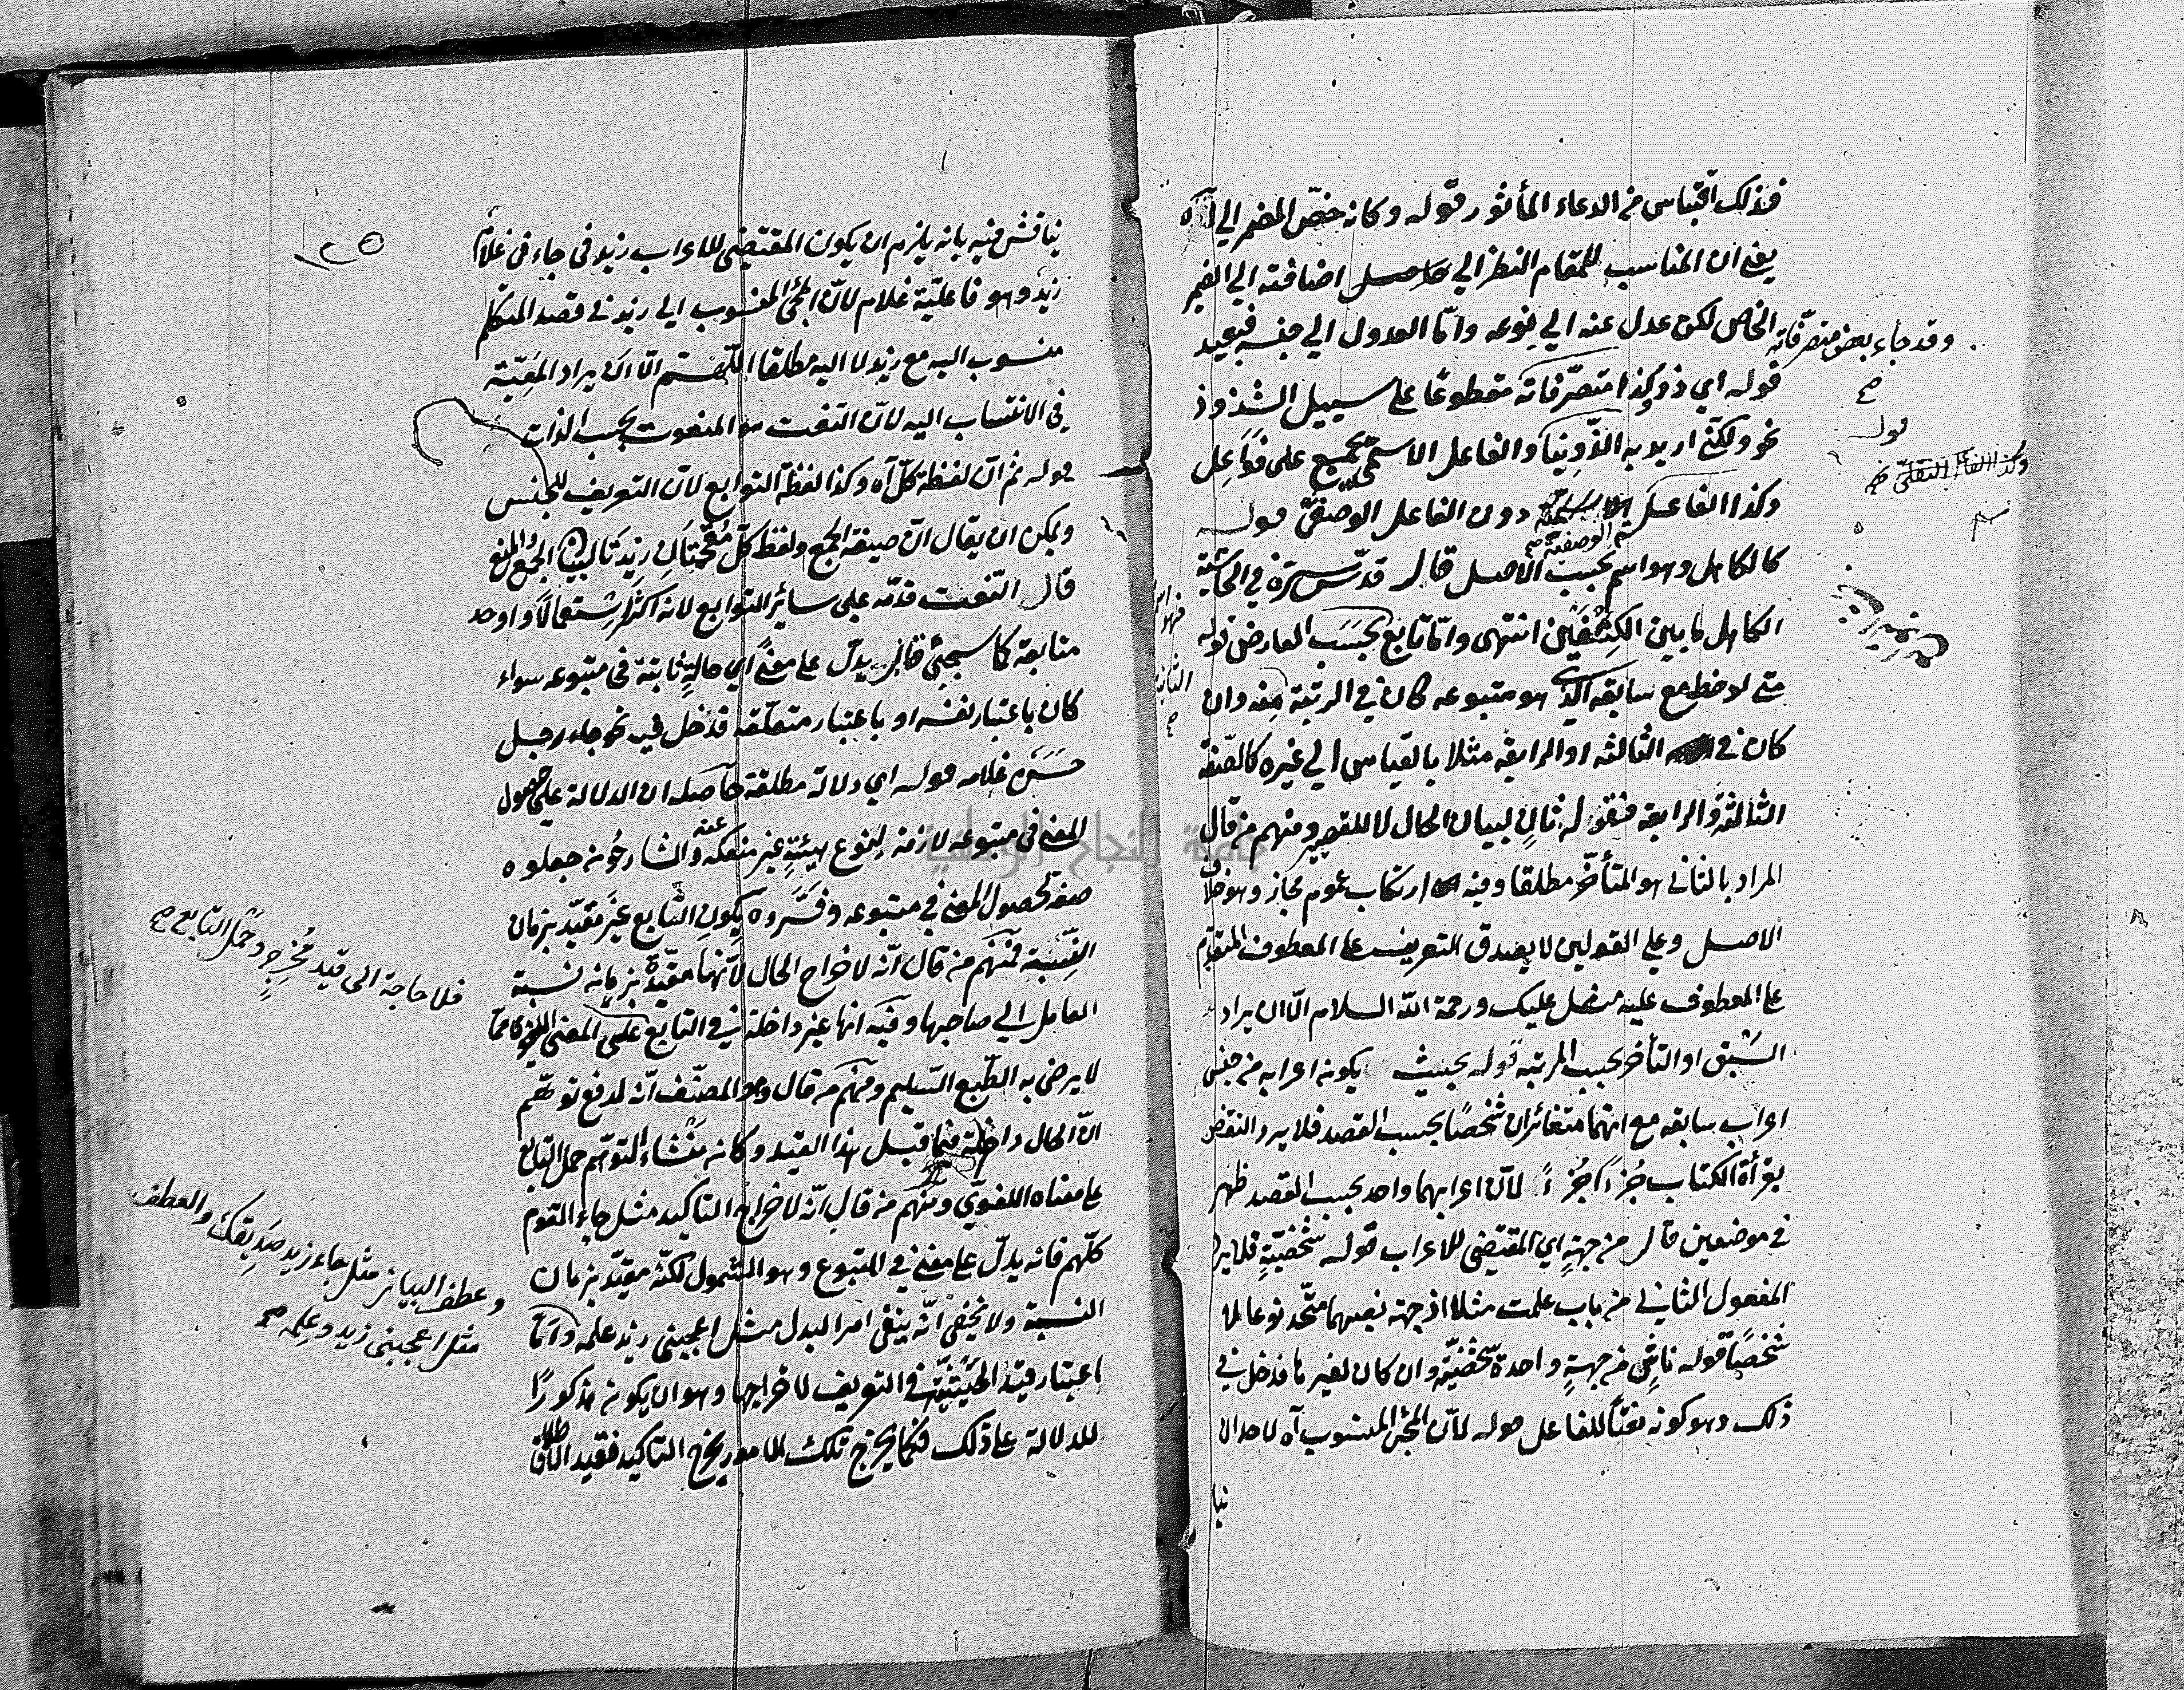 فذلك اقتباس من الدعاء المأثور قوله وكانه خصّ المضمر الي آه
يعني ان المناسب للمقام النظر الي حاصل اضافته الي الضمير
الخاص لكن عدل عنه الي نوعه وامّا العدول الي جنسه فبعيد
وقد جاء بعض متصرّفاته صح
قوله اي ذو وكذا متصرّفاته مقطوعًا علي سبيل الشذوذ
نحو ولكنّي اريد به الذّوينا والفاعل الاسمي يجمع على فَوَاعِل
قوله
وكذا الفاعل دون الفاعل الوصفيّ قوله
كالكاهل وهو اسم بحسب الاصل قال قدّس سرّه في الحاشية
الكاهل ما بين الكتفين انتهى وامّا تابع بحسب العارض قوله
متي لاحظ مع سابقه الذي هو متبوعه كان في الرتبة منه وان
كان في الثالثه او الرابعة مثلا بالقياس الي غيره كالصّفة
الثالثة والرابعة فقوله ثانٍ لبيان الحال لا للتقييد ومنهم من قال
المراد بالثاني هو المتأخّر مطلقا وفيه ارتكاب عموم مجاز وهو خلاف
الاصل وعلي القولين لا يصدق التعريف علي المعطوف المتقدّم
علي المعطوف عليه مثل عليك ورحمة اللّه السلام الّا ان يراد
السَّبق او التأخر بحسب المرتبة قوله بحيث يكون اعرابه من جنس
اعراب سابقه مع انّهما متغائران شخصًا بحسب القصد فلا يرد النقض
بقرأة الكتاب جُزءً جُزءً لانّ اعرابهما واحد بحسب القصد ظهر
في موضعين قال من جهةٍ اي المقتضي للاعراب قوله شخصيّةٍ فلا يرد
المفعول الثاني من باب علمت مثلا اذ جهة نصبهما متّحد نوعا لا
شخصًا قوله ناشٍ من جهةٍ واحدة شخصيّة وان كان لغيرها فدخل في
ذلك وهو كونه نعتًا للفاعل قوله لانّ المجئ المنسوب آه لاحد ان
ينا
١٢٥
يناقش فيه بانه يلزم ان يكون المقتضي للاعراب زيد في جاءني غلام
زيد وهو فاعليّة غلام لانّ المجئ المنسوب الي زيد في قصد المتكلم
منسوب اليه مع زيد لا اليه مطلقا اللّهم الّا ان يراد المعيّة
في الانتساب اليه لانّ النعت هو المنعوت بحسب الذات
قوله ثم انّ لفظة كلّ آه وكذا لفظة التوابع لانّ التعريف للجنس
ويمكن ان يقال انّ صيغة الجمع ولفظ كلّ مقحمتان زيدتا لبيان الجمع والمنع
قال النّعت قدّمه علي سائر التوابع لانه اكثر استعمالًا واوحد
متابعة كما سيجئ قال يدلّ علي معنًي اي حالةٍ ثابتة في متبوعه سواء
كان باعتبار نفسه او باعتبار متعلّقه فدخل فيه نحو جاء رجل
حَسَنٌ غلامه قوله اي دلالة مطلقة حاصله ان الدلالة علي حصول
المعني في متبوعه لازمة لنوع هيئةٍ غير منفكه عنه والشارحون جعلوه
صفة لحصول المعني في متبوعه وفسّروه بكون التابع غير مقيّد بزمان
النسبة فمنهم من قال انّه لاخراج الحال لانّها مقيّدة بزمانه نسبة
العامل الي صاحبها وفيه انها غير داخلة في التابع علي المعني اللغوي ممّا
فلا حاجة الى قيد مُخرِجٍ وحمل التابع صح
لا يرضى به الطّبع السليم ومنهم من قال وهو المصنّف انّه لدفع توهّم
انّ الحال داخلة فيما قبل هذا القيد وكانه منشاء التوهّم حمل التابع
علي معناه اللغويّ ومنهم من قال انّه لاخراج التاكيد مثل جاء القوم
كلّهم فانه يدلّ علي معني في المتبوع وهو الشمول لكنّه مقيّد بزمان
النسبة ولا يخفى انّه ينقى امر البدل مثل اعجبني زيد علمه وامّا
وعطف البيان مثل جاء زيد صديقك والعطف
مثل اعجبني زيد وعلمه صح
اعتبار قيد الحيثيّة في التعريف لاخراجها وهو ان يكون مذكورًا
للدلالة علي ذلك فكما يخرج تلك الامور يخرج التاكيد فقيد الاطلاق
جامعة النجاح الوطنية